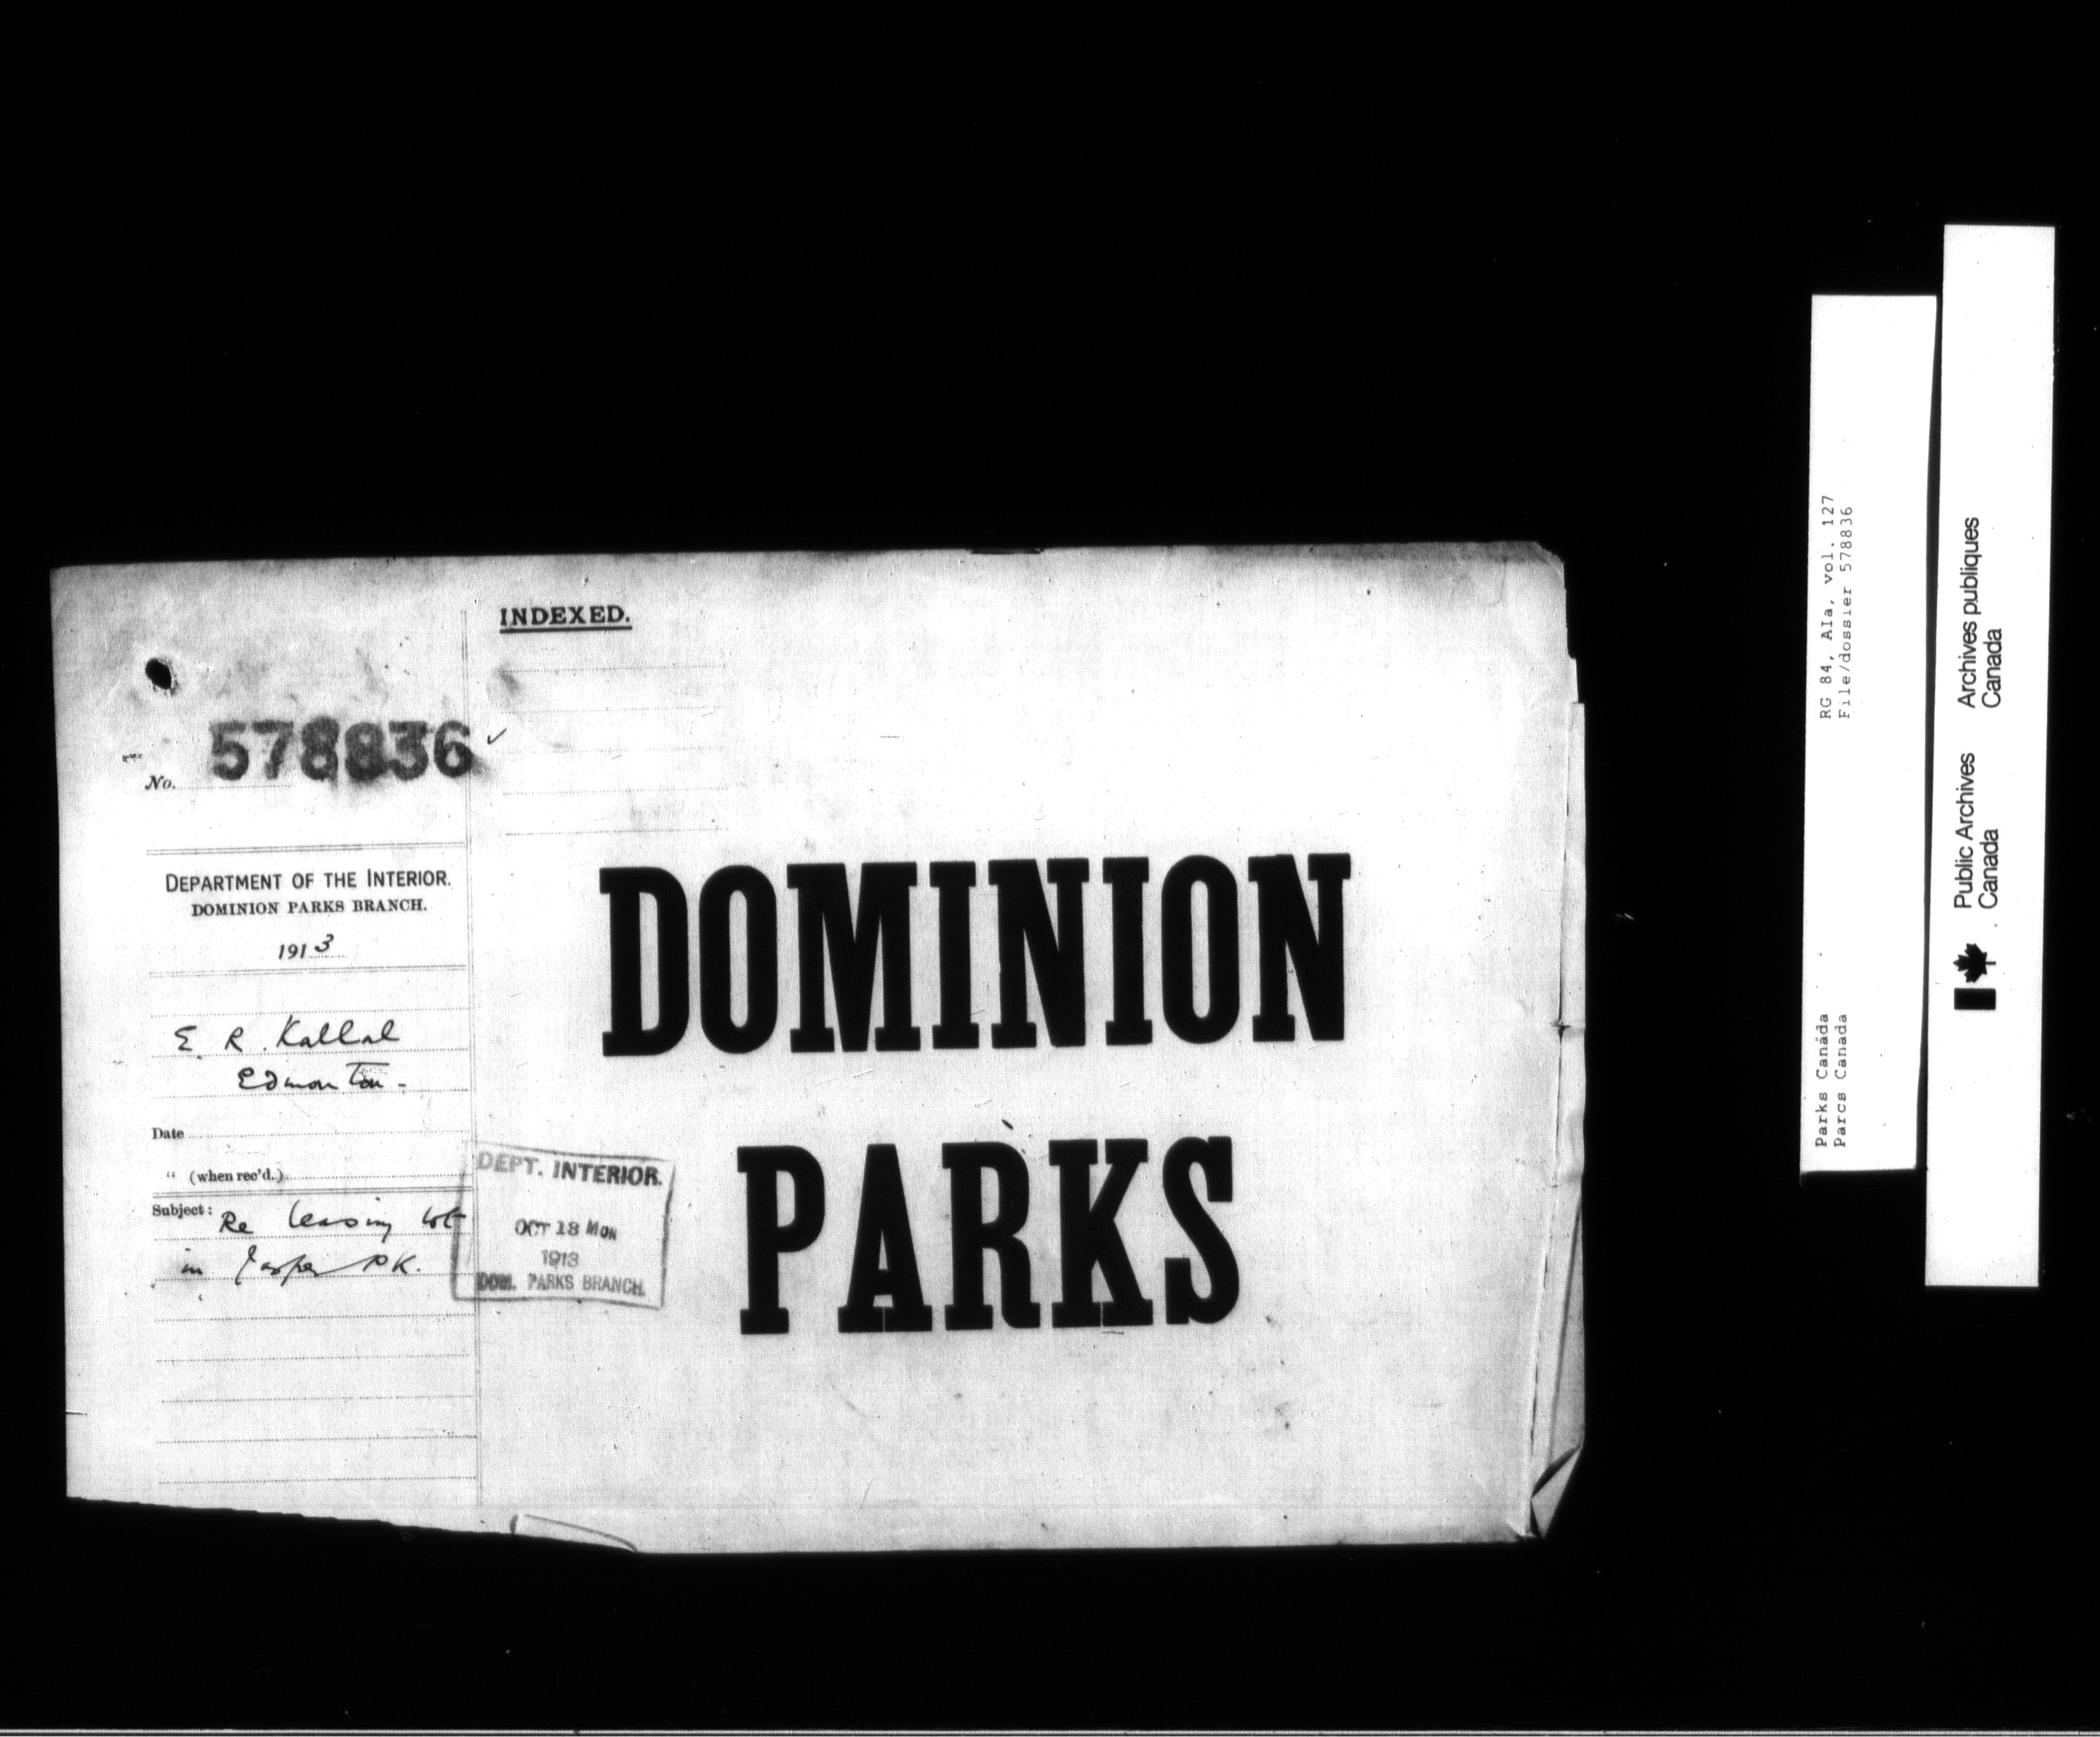 INDEXED.
No. 578836
DEPARTMENT OF THE INTERIOR.
DOMINION PARKS BRANCH.
1913
E. R. Kallal
Edmonton -
Date
" (when rec'd.)
Subject: Re leasing lot
in Jasper PK.
DEPT. INTERIOR.
OCT 13 MON
1913
DOM. PARKS BRANCH.
DOMINION
PARKS
RG 84, A1a, vol. 127
File/dossier 578836
Parks Canada
Parcs Canada
Public Archives
Canada
Archives publiques
Canada